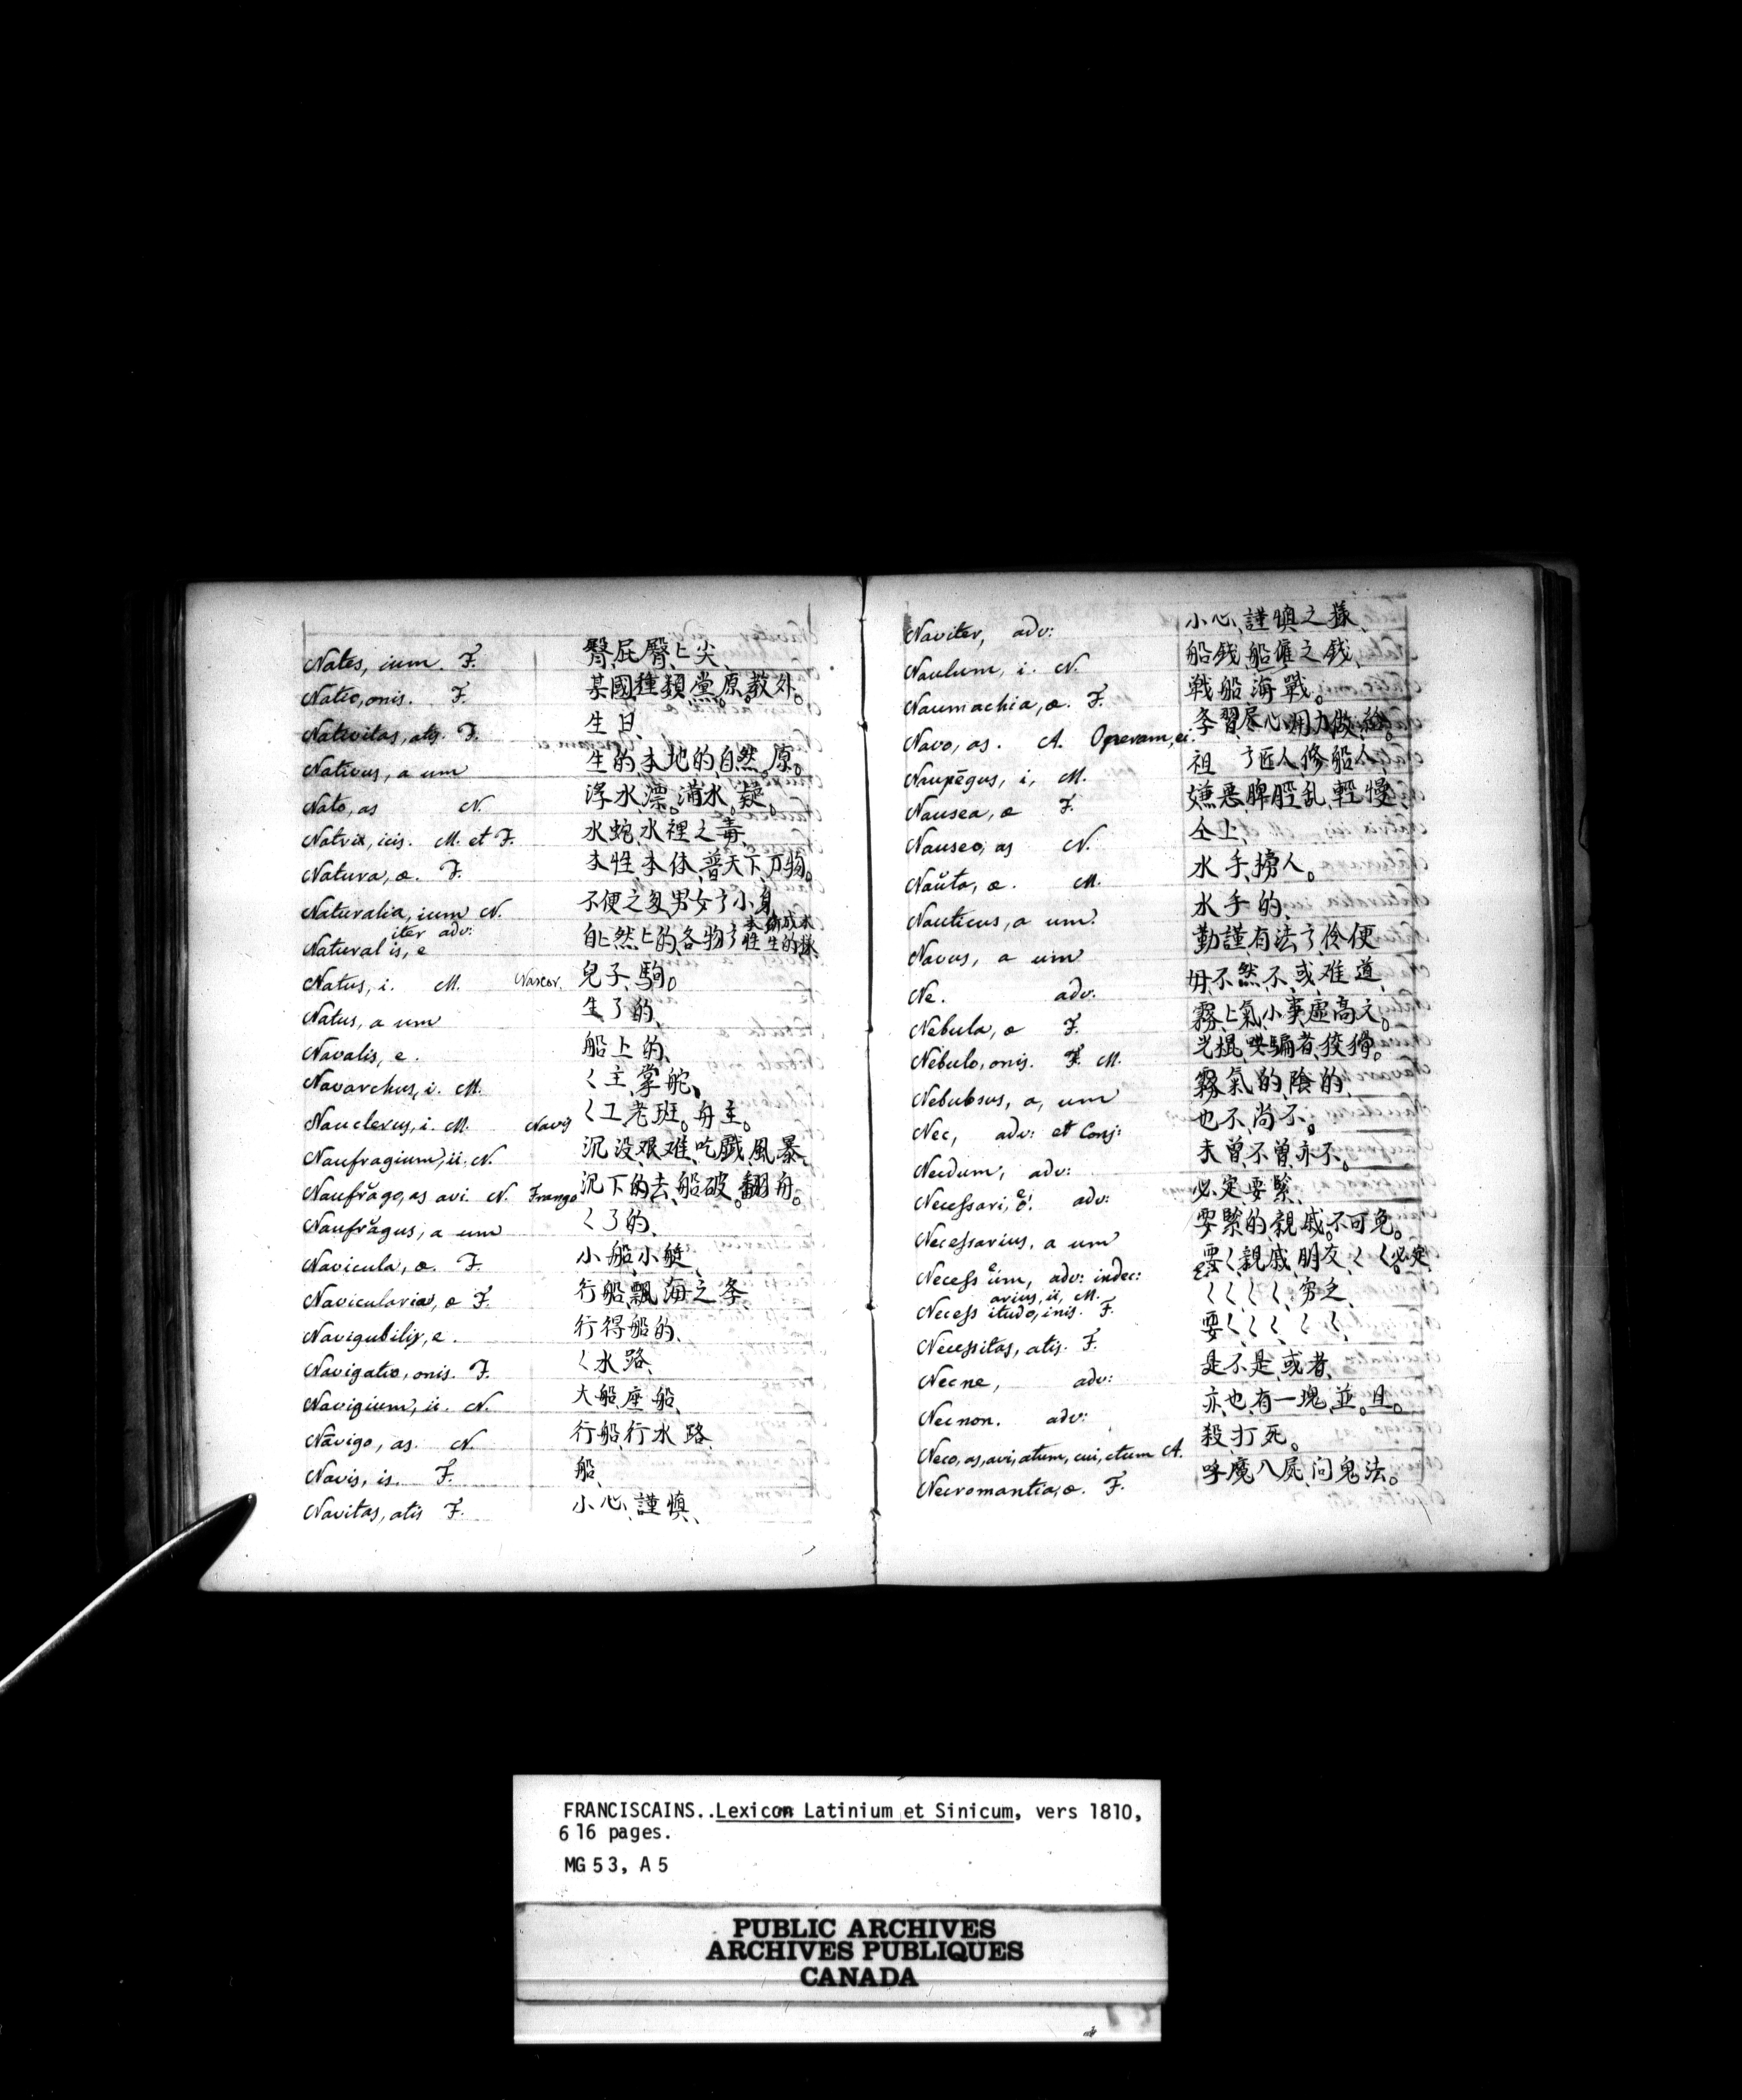 Nates, ium. F. 臀、屁臀、尖、
Natio, onis. F. 某國種類、黨。原。教外。
Nativitas, atis. F. 生日、
Nativus, a um 生的、本地的、自然。原。
Nato, as N. 浮水、漂。滿水。疑。
Natrix, icis. M. et F. 水蛇、水裡之毒、
Natura, æ. F. 本性、本体、普天下、万物。
Naturalia, ium N. 不便之男女小身
iter adv:
Naturalis, e 自然的、各物 本性 生的樣
Natus, i. M. Nascor. 兒子、駒。
Natus, a um 生了的、
Navalis, e. 船上的、
Navarchus, i. M. 〱主、掌舵、
Nauclerus, i. M. Navis 〱工、老班。舟主。
Naufragium, ii. N. 沉没、艰难、吃風暴、
Naufrăgo, as avi. N. Frango 沉下的去、船破。翻舟。
Naufrăgus, a um 〱了的、
Navicula, æ. F. 小船、小艇、
Navicularia, æ F. 行船、飄海之
Navigabilis, e. 行得船的、
Navigatio, onis. F. 〱水路、
Navigium, ii. N. 大船、座船、
Nāvigo, as. N. 行船、行水路、
Navis, is. F. 船、
Navitas, atis F. 小心、謹慎、
Naviter, adv: 小心、謹慎之樣、
Naulum, i. N. 船錢、船僱之錢、
Naumachia, æ. F. 戦船、海戰。
Navo, as. A. Operam, ei. 習、尽心、用力做、給。
Naupēgus, i, M. 祖 匠人、修船人
Nausea, æ F. 嫌恶、脾腔乱、輕慢、
Nauseo, as N. 仝上、
Naŭta, æ. M. 水手、榜人。
Nauticus, a um. 水手的、
Navus, a um 勤謹、有法、伶便
Ne. adv. 毋、不然、不、或、难道、
Nebula, æ F. 霧、氣、小事、虛高之。
Nebulo, onis. F. M. 光棍、哄騙者、狡猾。
Nebulosus, a, um 霧氣的、陰的、
Nec, adv: et Conj: 也不、尚不。
Necdum, adv: 未曾、不曾、亦不。
Necessari, è! ò! adv: 必定、要緊、
Necessarius, a um 要緊的、親戚。不可免。
Necess e um, adv: indec: 要〱、親戚、朋友、〱〱必定
arius, ii, M.
Necess itudo, inis. F. 〱〱〱〱、穷乏、
Necessitas, atis. F. 要〱〱〱〱〱、
Necne, adv: 是不是、或者、
Necnon. adv: 亦、也、有一塊、並。且。
Neco, as, avi, atum, cui, ctum A. 殺、打死。
Necromantia, æ. F. 呼魔入屍、问鬼法。
FRANCISCAINS..Lexicon Latinium et Sinicum, vers 1810,
616 pages.
MG 53, A 5
PUBLIC ARCHIVES
ARCHIVES PUBLIQUES
CANADA